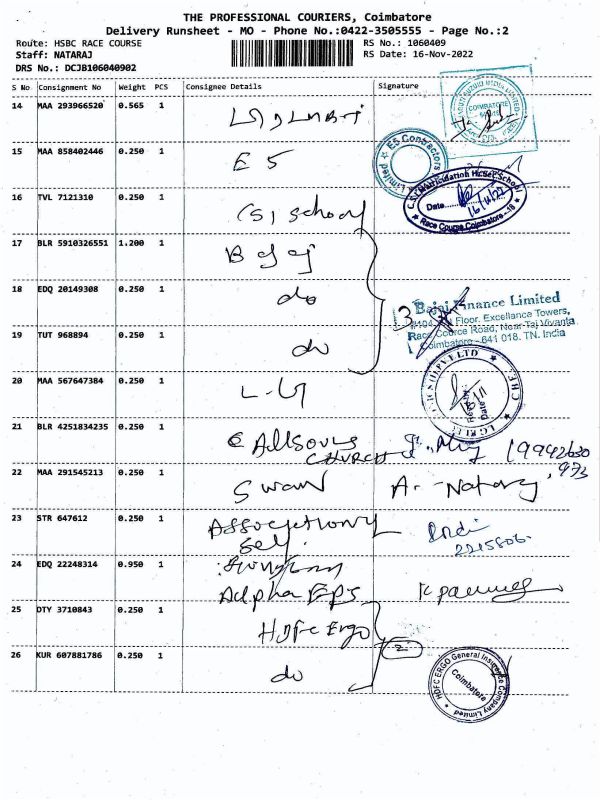 THE PROFESSIONAL COURIERS, Coimbatore
Delivery Runsheet - MO - Phone No.:0422-3505555 - Page No.:2
Route: HSBC RACE COURSE RS No.: 1060409
Staff: NATARAJ RS Date: 16-Nov-2022
DRS No.: DCJB106040902
S No Consignment No Weight PCS Consignee Details Signature
14 MAA 293966520 0.565 1
COIMBATORE
15 MAA 858402446 0.250 1 E 5
E5 Contractors Limited
16 TVL 7121310 0.250 1 CSI School
C.S.I. Matriculation Hr.Sec.School
Date 16/11/22
Race Course, Coimbatore-18
17 BLR 5910326551 1.200 1 Bajaj
18 EDQ 20149308 0.250 1 do
3 Bajaj Finance Limited
Floor, Excellance Towers,
Race Cource Road, Near Taj Vivanta
Coimbatore - 641 018. TN. India
19 TUT 968894 0.250 1 do
20 MAA 567647384 0.250 1 L-G
21 BLR 4251834235 0.250 1 Allsouls
CHURCH
22 MAA 291545213 0.250 1 Swan A. Nataraj
23 STR 647612 0.250 1
2215806
24 EDQ 22248314 0.950 1
Alpha EPS
25 DTY 3710843 0.250 1 HDFC Ergo
2
26 KUR 607881786 0.250 1 do
HDFC ERGO General Insurance Company Limited
Coimbatore